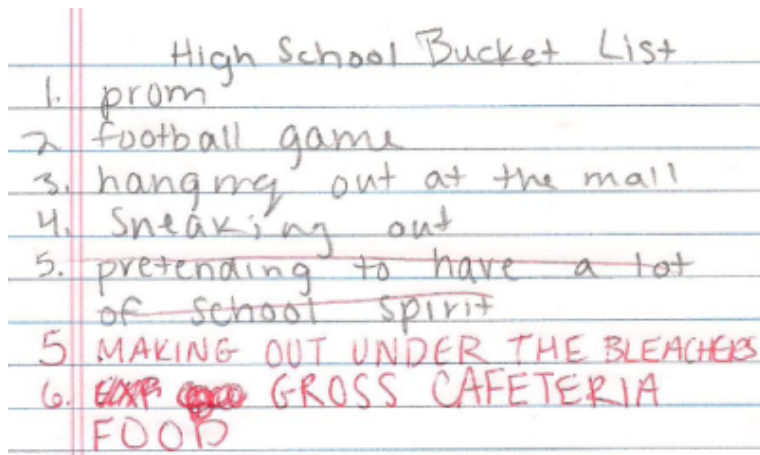 High School Bucket List
1. prom
2 football game
3. hanging out at the mall
4. Sneaking out
5. pretending to have a lot
of school spirit
5 MAKING OUT UNDER THE BLEACHERS
6. GROSS CAFETERIA
FOOD